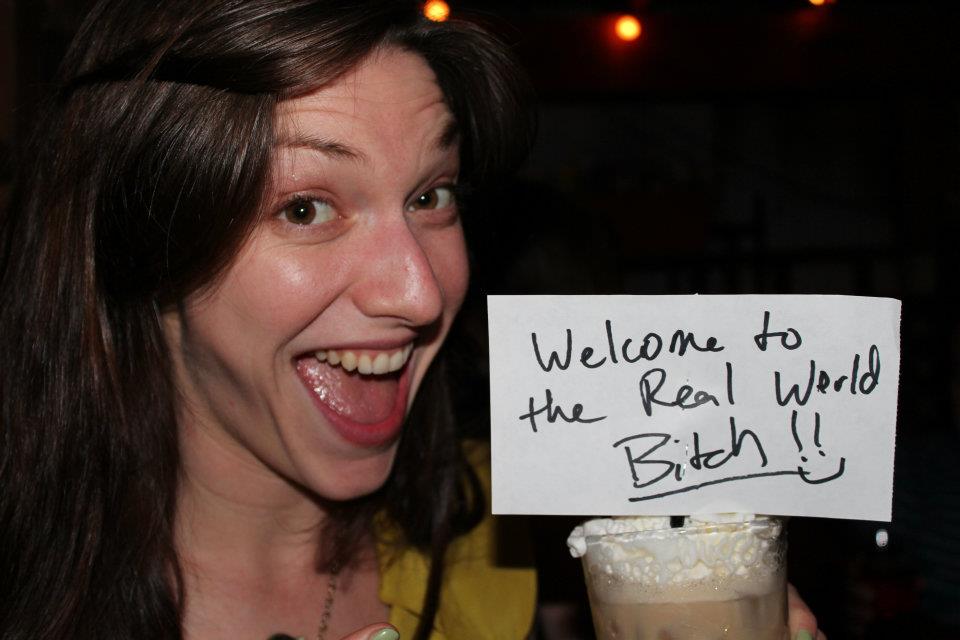 Welcome to
the Real World
Bitch!!